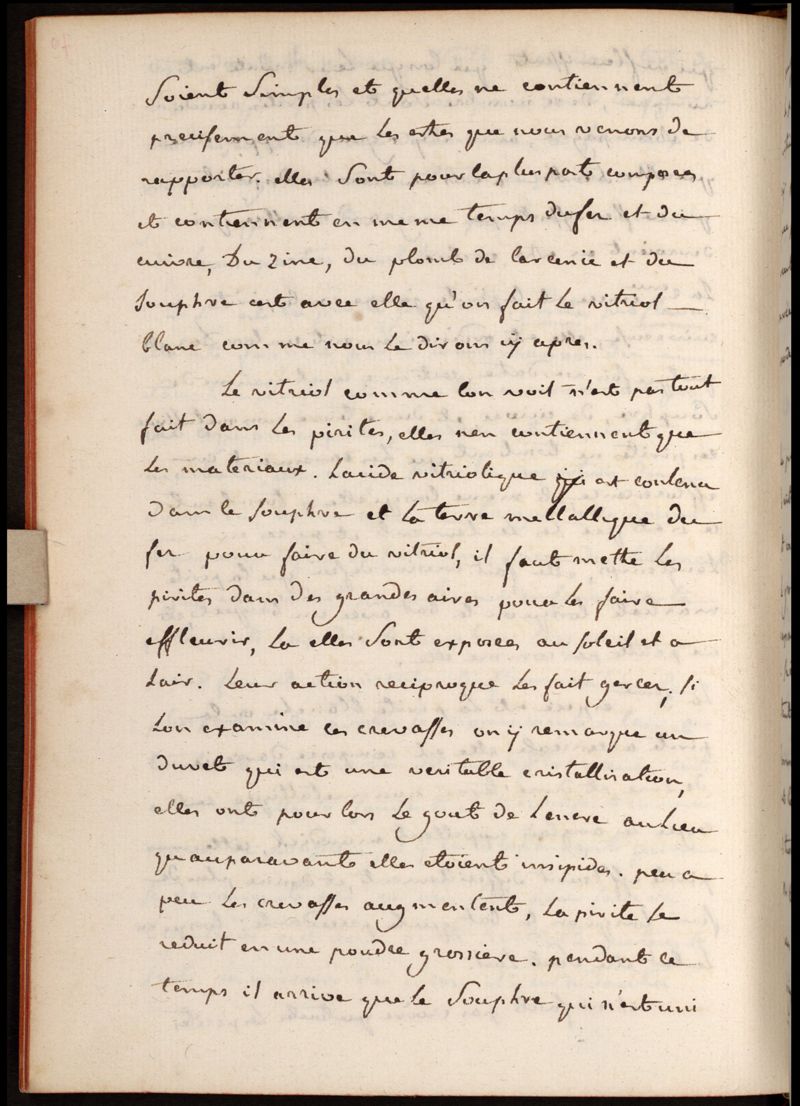 Soient Simples et quelles ne contiennent
precisement que les estes que nous venons de
rapporter. elles Sont pour la plus part composees
et contiennent en meme temps du fer et du
cuivre, Du Zinc, du plomb de larcenic et du
Souphre cest avec elle qu'on fait le vitriol
blanc comme nous le dirons cy apres.
Le vitriol comme lon voit n'est pas tout
fait dans les pirites, elles nen contiennent que
les materiaux. Lacide vitriolique qui est contenu
dans le Souphre et la terre mettallique du
fer pour faire du vitriol, il faut mettre les
pirites dans des grandes aires pour les faire
effleurir, la elles Sont exposees au Soleil et a
Lair. Leur action reciproque les fait gercer, Si
Lon examine ces crevasses on y remarque un
duvet qui est une veritable cristallisation,
elles ont pour lors le gout de Lencre au Lieu
qu'auparavant elles etoient insipides. peu a
peu les crevasses augmentent, la pirite Se
reduit en une poudre grossiere. pendant ce
temps il arrive que le Souphre qui n'est uni